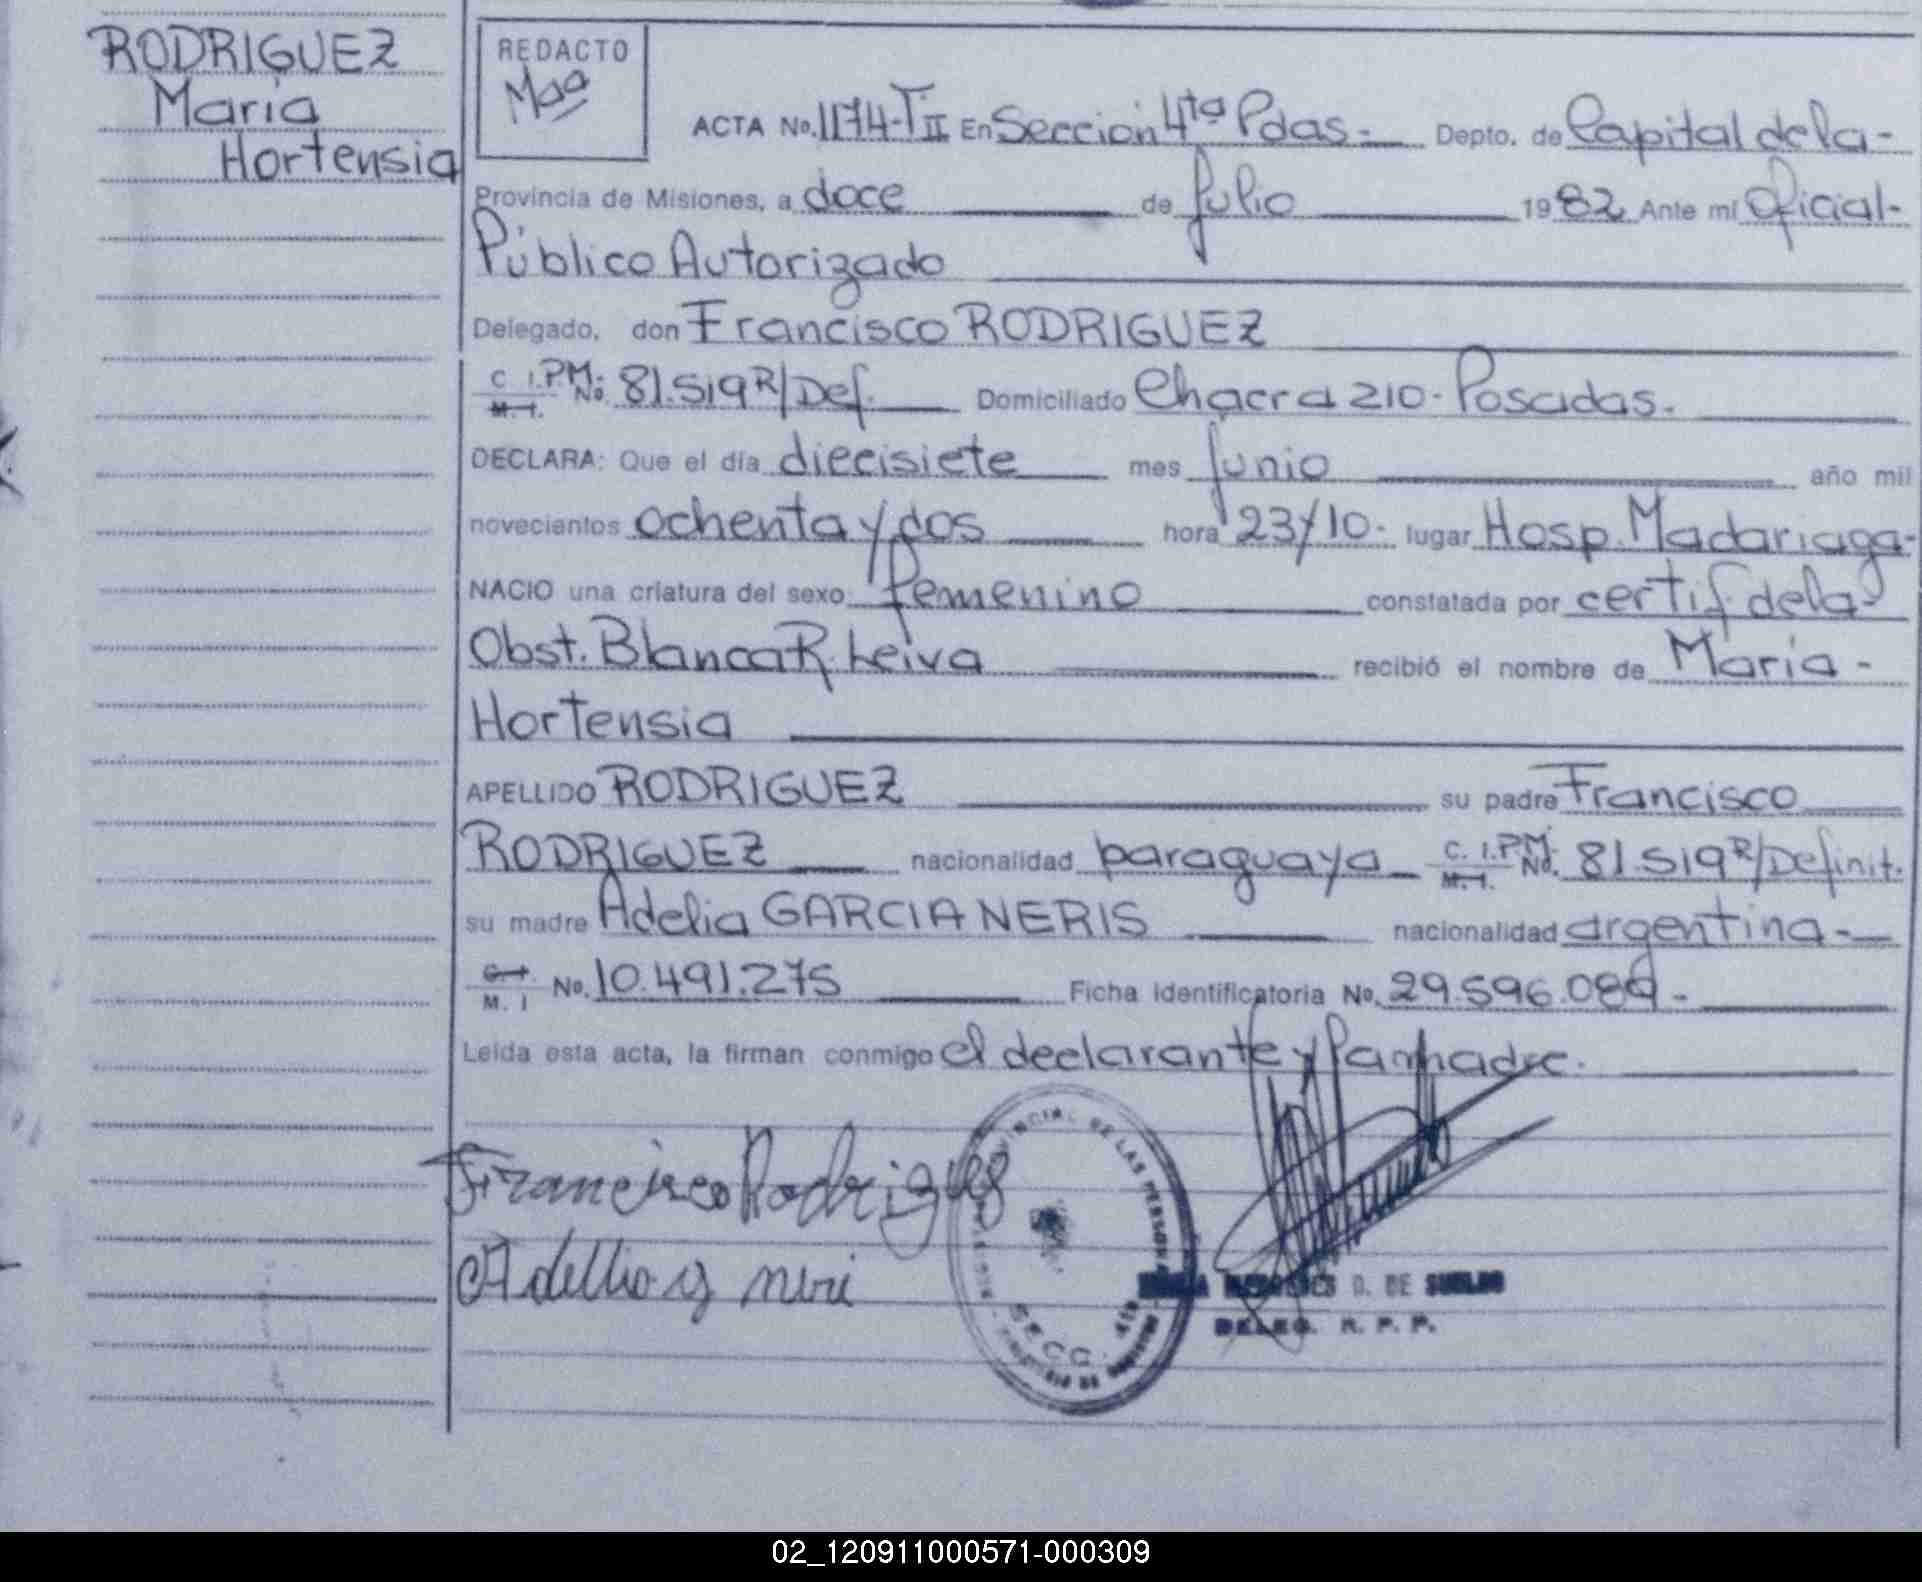 RODRIGUEZ
María
Hortensia
REDACTO
ACTA No. 1174-T II En Seccion 4ta Pdas.- Depto. de Capital de la-
Provincia de Misiones, a doce de Julio 1982 Ante mí Oficial-
Público Autorizado
Delegado, don Francisco RODRIGUEZ
C. I.P.M. M.I. No. 81.519 R/Def. Domiciliado Chacra 210-Posadas.
DECLARA: Que el día diecisiete mes Junio año mil
novecientos ochenta y dos hora 23/10- lugar Hosp. Madariaga-
NACIO una criatura del sexo femenino constatada por certif. de la
Obst. Blanca R. Leiva recibió el nombre de María-
Hortensia
APELLIDO RODRIGUEZ su padre Francisco
RODRIGUEZ nacionalidad paraguaya C. I.P.M. M.I. No. 81.519 R/Definit.
su madre Adelia GARCIA NERIS nacionalidad argentina-
C.I. M. I No. 10.491.275 Ficha identificatoria No. 29.596.089-
Leída esta acta, la firman conmigo el declarante y la madre.
Francisco Rodriguez
Adellia g neri
PROVINCIAL DE LAS PERSONAS
SECC. 4ta
D. DE SUELDO
DELEG. R. P. P.
02_120911000571-000309